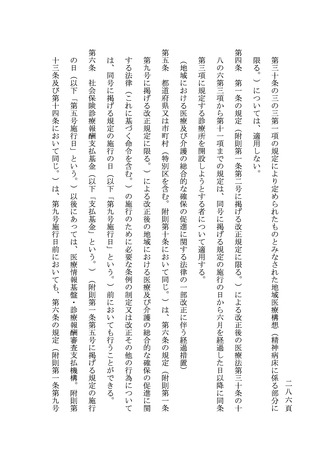 二八六頁
第三十条の三の三第一項の規定により定められたものとみなされた地域医療構想（精神病床に係る部分に
限る。）については、適用しない。
第四条　第一条の規定（附則第一条第二号に掲げる改正規定に限る。）による改正後の医療法第三十条の十
八の六第三項から第十一項までの規定は、同号に掲げる規定の施行の日から六月を経過した日以後に同条
第三項に規定する診療所を開設しようとする者について適用する。
（地域における医療及び介護の総合的な確保の促進に関する法律の一部改正に伴う経過措置）
第五条　都道府県又は市町村（特別区を含む。附則第十条において同じ。）は、第六条の規定（附則第一条
第九号に掲げる改正規定に限る。）による改正後の地域における医療及び介護の総合的な確保の促進に関
する法律（これに基づく命令を含む。）の施行のために必要な条例の制定又は改正その他の行為について
は、同号に掲げる規定の施行の日（以下「第九号施行日」という。）前においても行うことができる。
第六条　社会保険診療報酬支払基金（以下「支払基金」という。）（附則第一条第五号に掲げる規定の施行
の日（以下「第五号施行日」という。）以後にあっては、医療情報基盤・診療報酬審査支払機構。附則第
十三条及び第十四条において同じ。）は、第九号施行日前においても、第六条の規定（附則第一条第九号